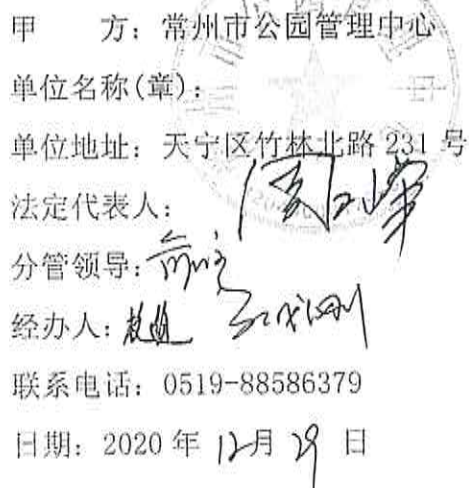 甲 方：常州市公园管理中心
单位名称(章)：
单位地址：天宁区竹林北路 231 号
法定代表人：
分管领导：
经办人：
联系电话：0519-88586379
日期：2020 年 12月 29 日